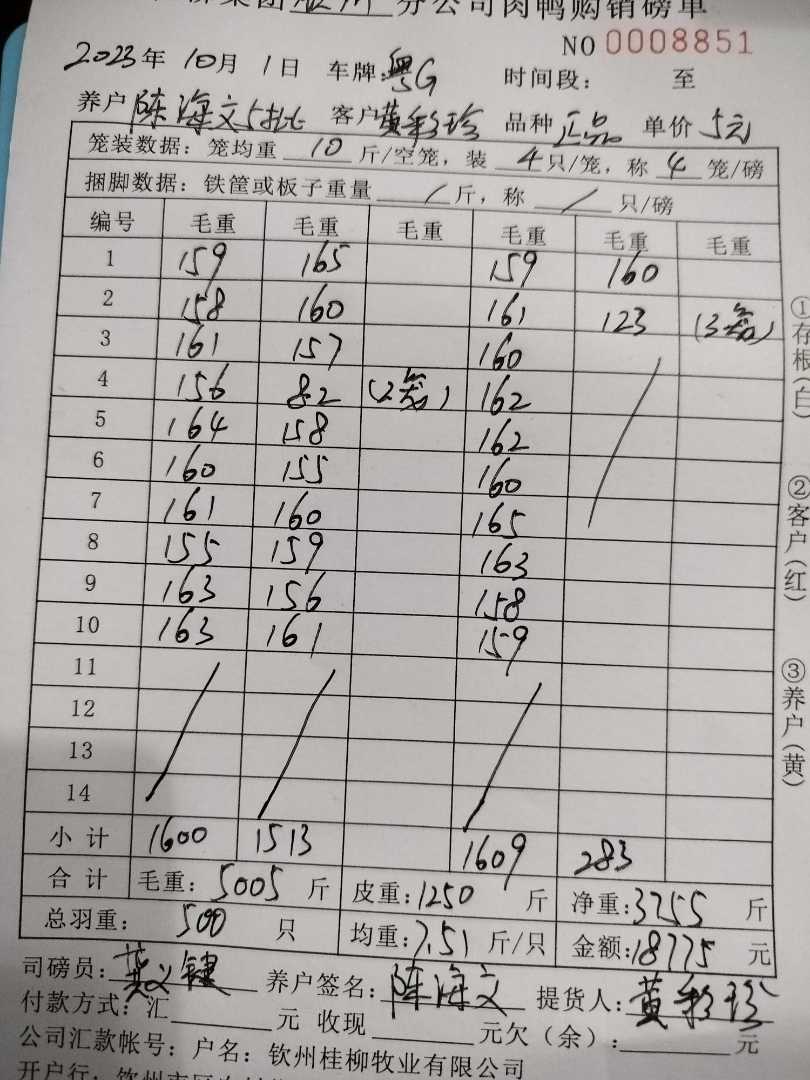 集团 分公司肉鸭购销磅单
NO 0008851
2023年 10月 1日 车牌:粤G 时间段: 至
养户 陈海文5批 客户 黄彩珍 品种 正品 单价 5元
笼装数据:笼均重 10 斤/空笼,装 4只/笼,称 4 笼/磅
捆脚数据:铁筐或板子重量 / 斤,称 / 只/磅
编号 毛重 毛重 毛重 毛重 毛重 毛重
1 159 165 159 160
2 158 160 161 123 (3笼)
3 161 157 160
4 156 82 (2笼) 162
5 164 158 162
6 160 155 160
7 161 160 165
8 155 159 163
9 163 156 158
10 163 161 159
11
12
13
14
小计 1600 1513 1609 283
合计 毛重:5005 斤 皮重:1250 斤 净重:3755 斤
总羽重: 500 只 均重:7.51 斤/只 金额:18775 元
司磅员: 养户签名:陈海文 提货人:黄彩珍
付款方式:汇 元 收现 元欠(余): 元
公司汇款帐号:户名:钦州桂柳牧业有限公司
开户行:
①存根(白)
②客户(红)
③养户(黄)